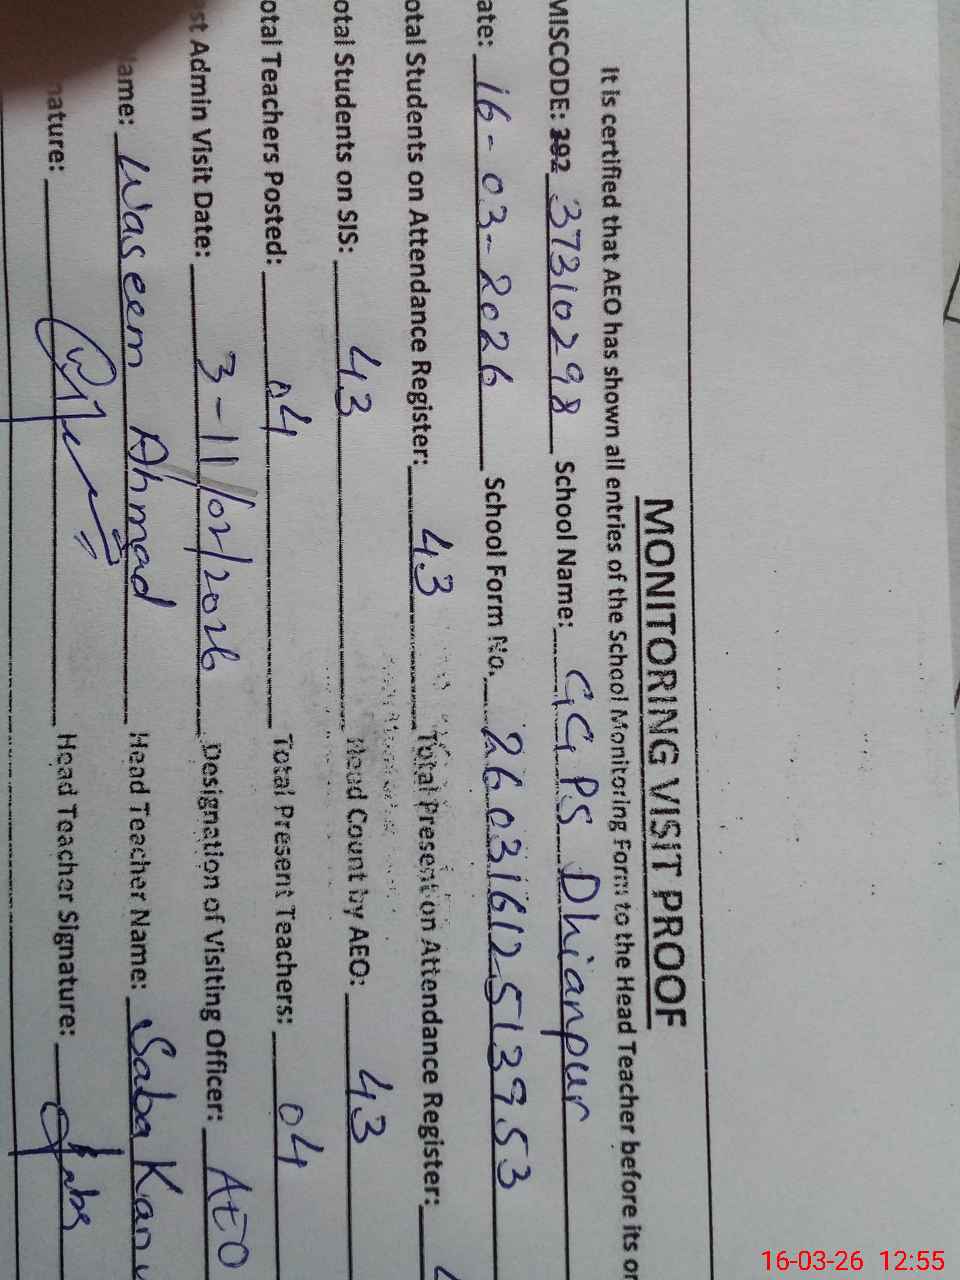 MONITORING VISIT PROOF
It is certified that AEO has shown all entries of the School Monitoring Form to the Head Teacher before its
MISCODE: 292 37310298 School Name: GGPS Dhianpur
ate: 16-03-2026 School Form No. 26031612513953
otal Students on Attendance Register: 43 Total Present on Attendance Register:
otal Students on SIS: 43 Head Count by AEO: 43
otal Teachers Posted: 04 Total Present Teachers: 04
st Admin Visit Date: 3-11/02/2026 Designation of Visiting Officer: AEO
ame: Waseem Ahmad Head Teacher Name: Saba Kan
nature: Head Teacher Signature: Saba
16-03-26 12:55